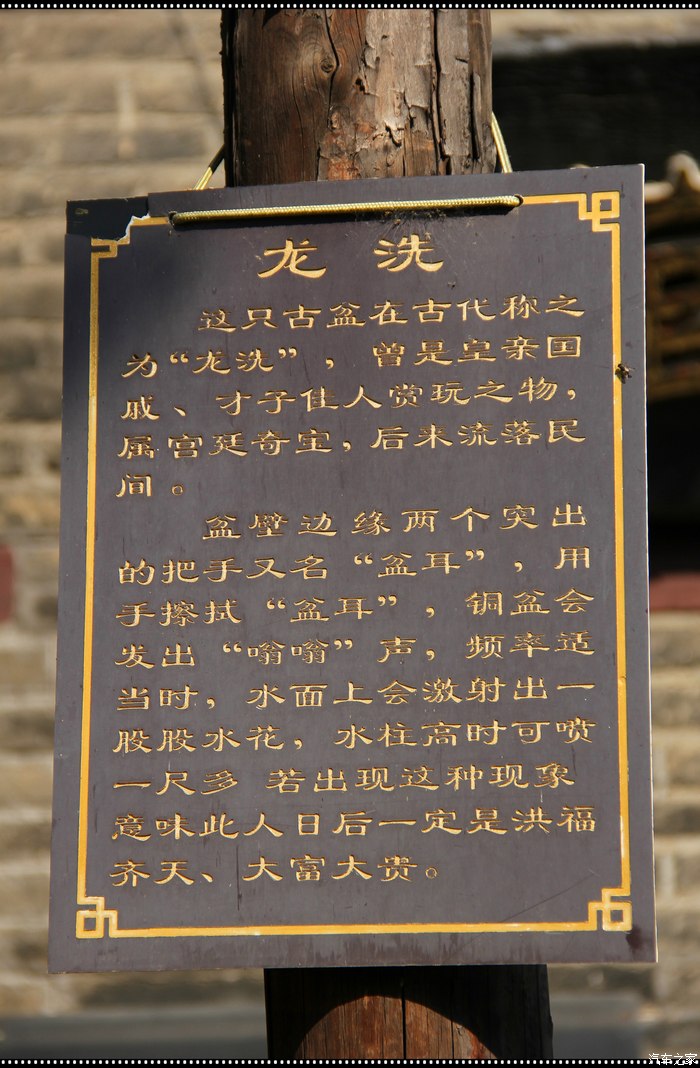 龙 洗
这只古盆在古代称之
为“龙洗”，曾是皇亲国
戚、才子佳人赏玩之物，
属宫廷奇宝，后来流落民
间。
盆壁边缘两个突出
的把手又名“盆耳”，用
手擦拭“盆耳”，铜盆会
发出“嗡嗡”声，频率适
当时，水面上会激射出一
股股水花，水柱高时可喷
一尺多 若出现这种现象
意味此人日后一定是洪福
齐天、大富大贵。
汽车之家